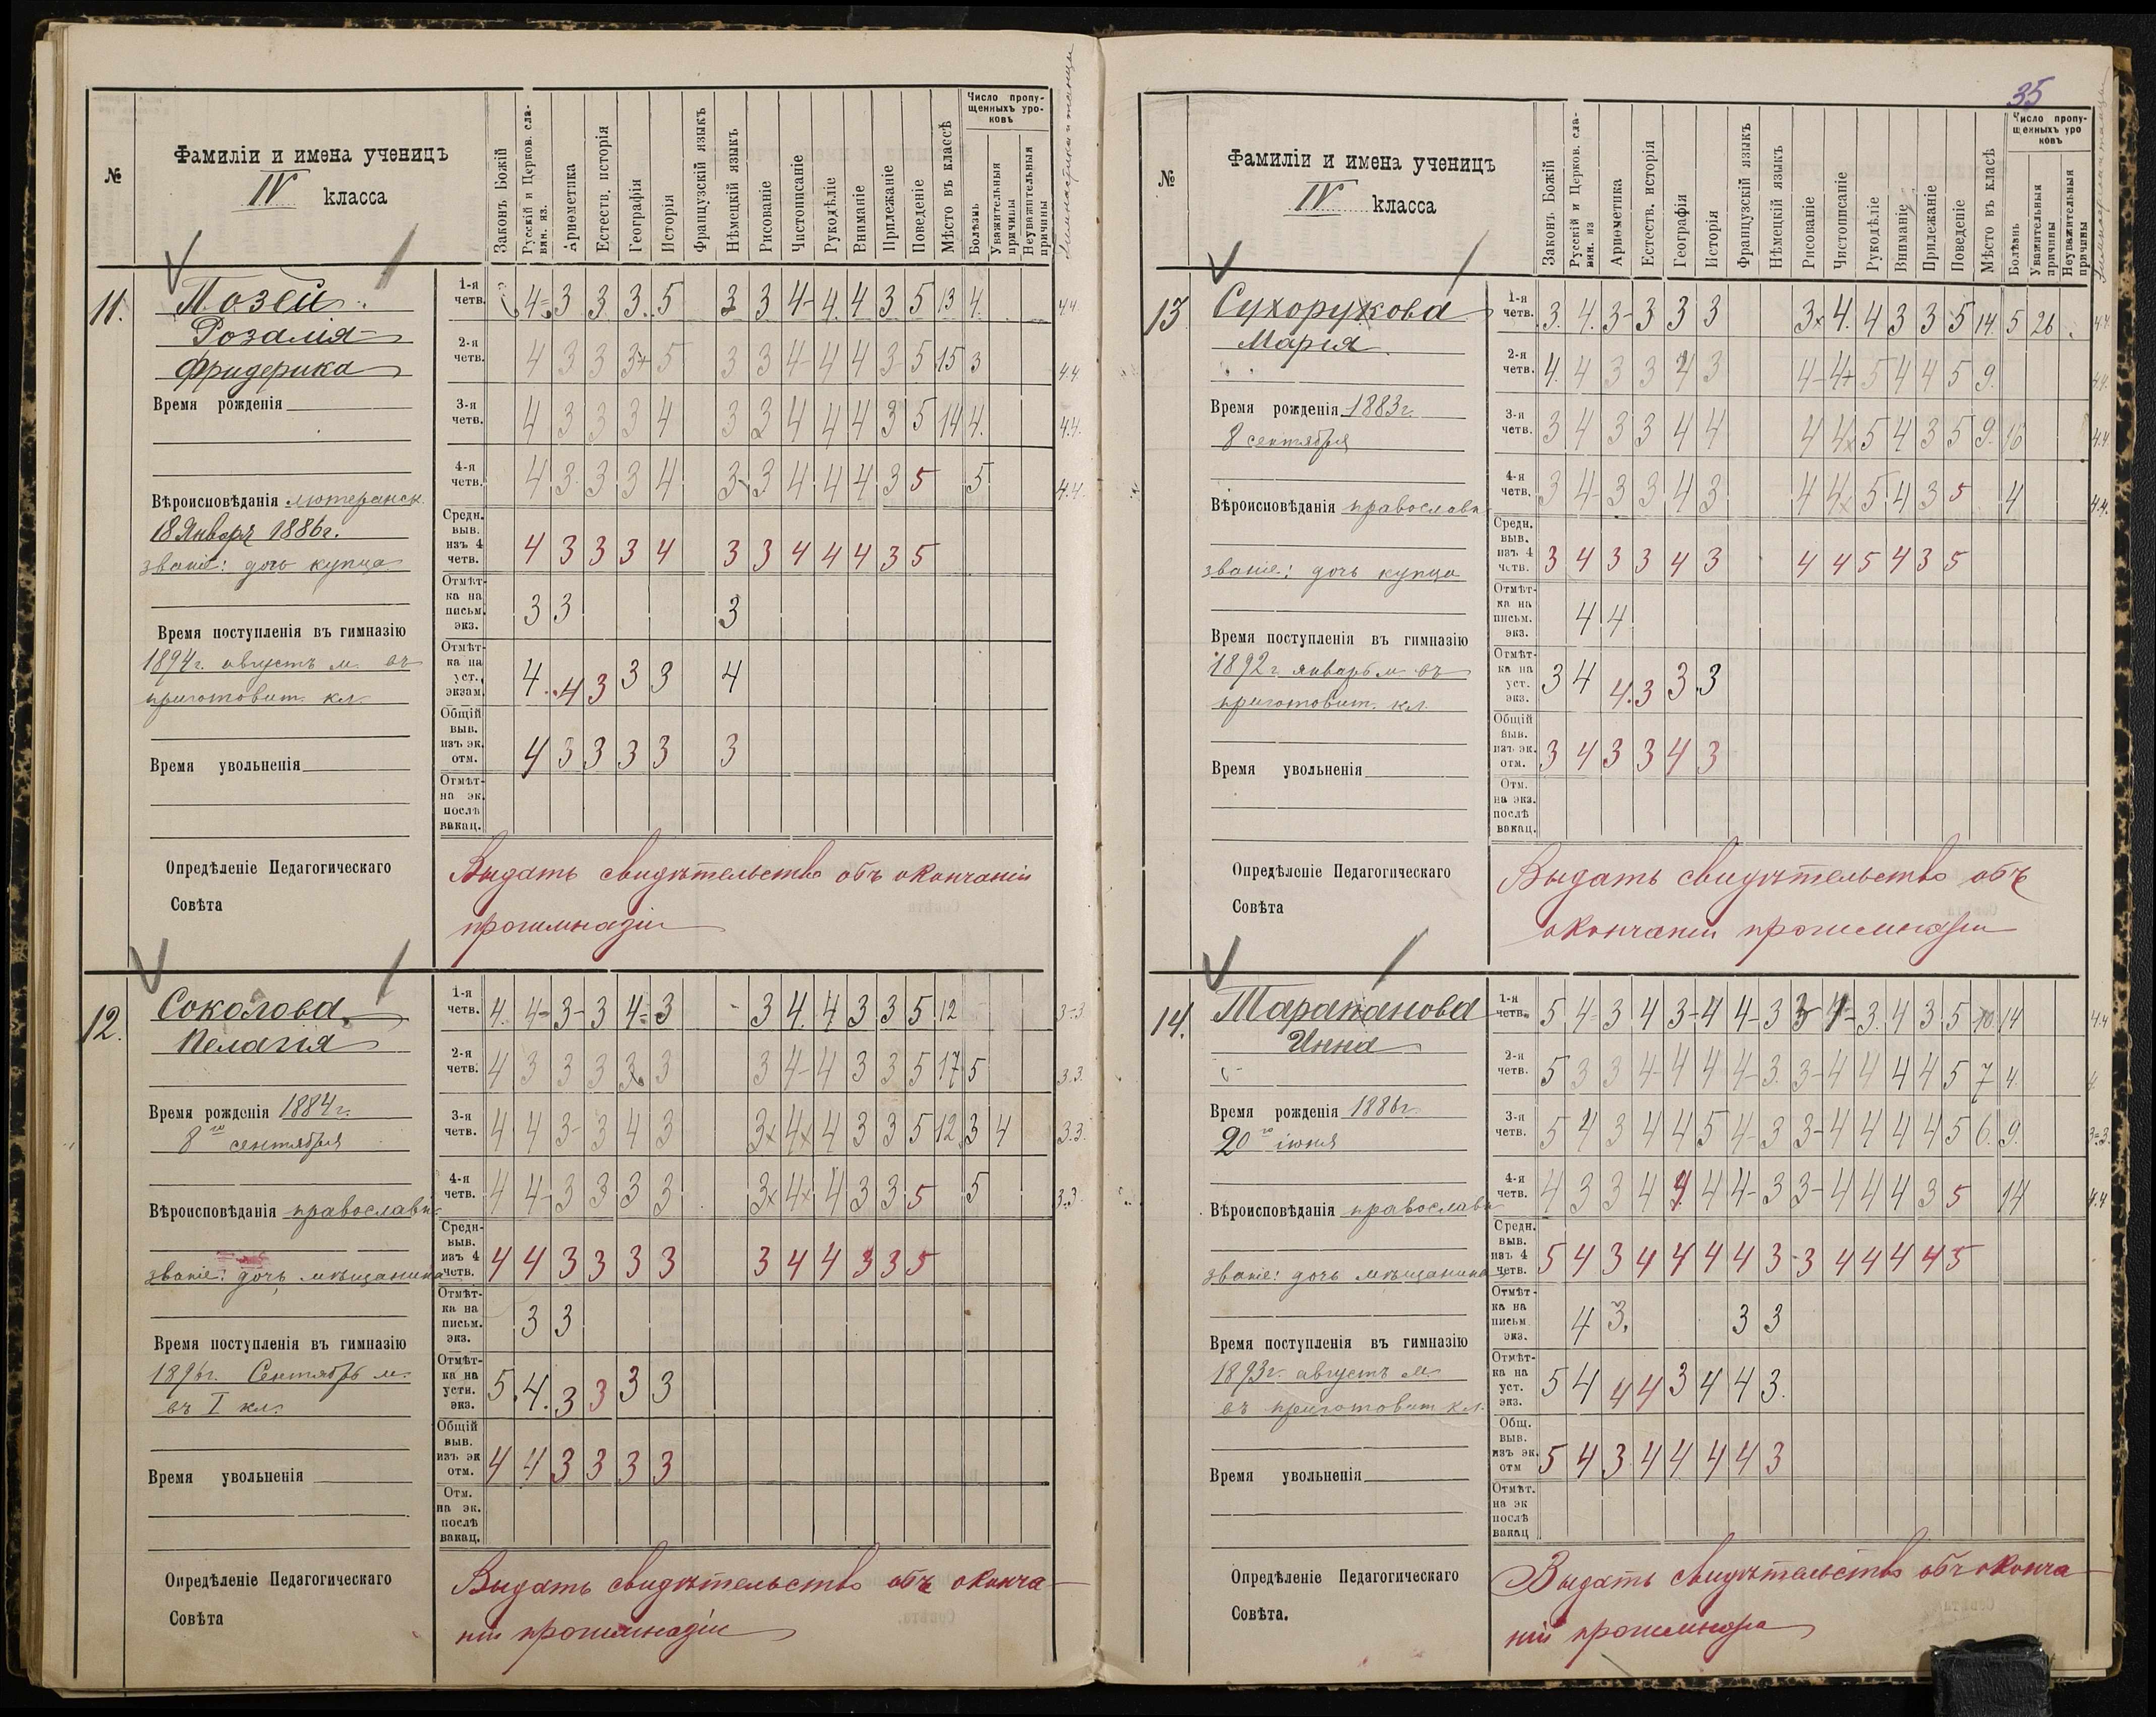 №
Фамиліи и имена ученицъ
IV класса
Законъ Божій
Русскій и Церков. сла-
вян. яз.
Ариѳметика
Естеств. исторія
Географія
Исторія
Французскій языкъ
Нѣмецкій языкъ
Рисованіе
Чистописаніе
Рукодѣліе
Вниманіе
Прилежаніе
Поведеніе
Мѣсто въ классѣ
Число пропу-
щенныхъ уро-
ковъ
Болѣзнь
Уважительныя
причины
Неуважительныя
причины
11.
Мозей
Розалія
Фридерика
Время рожденія
Вѣроисповѣданія лютеранск.
18 Января 1886 г.
званіе: дочь купца
Время поступленія въ гимназію
1894 г. августъ м. въ
приготовит. кл.
Время увольненія
Опредѣленіе Педагогическаго
Совѣта
1-я
четв. 4 3 3 3 5 3 3 4- 4 4 3 5 13 4. 4.4
2-я
четв. 4 3 3 3+ 5 3 3 4- 4 4 3 5 15 3 4.4
3-я
четв. 4 3 3 3 4 3 3 4 4 4 3 5 14 4. 4.4.
4-я
четв. 4 3 3 3 4 3 3 4 4 4 3 5 5 4.4.
Средн.
выв.
изъ 4
четв. 4 3 3 3 4 3 3 4 4 4 3 5
Отмѣт-
ка на
письм.
экз. 3 3 3
Отмѣт-
ка на
уст.
экзам. 4 4 3 3 3 4
Общій
выв.
изъ эк.
отм. 4 3 3 3 3 3
Отмѣт-
на эк.
послѣ
вакац.
Выдать свидѣтельство объ окончаніи
прогимназіи
12.
Соколова
Пелагія
Время рожденія 1884 г.
8 го сентября
Вѣроисповѣданія православн.
званіе: дочь мѣщанина
Время поступленія въ гимназію
1896 г. Сентябрь м.
въ I кл.
Время увольненія
Опредѣленіе Педагогическаго
Совѣта
1-я
четв. 4. 4- 3- 3 4- 3 3 4. 4 3 3 5 12 3-3
2-я
четв. 4 3 3 3 3 3 3 4- 4 3 3 5 17 5 3.3.
3-я
четв. 4 4 3- 3 4 3 3x 4x 4 3 3 5 12 3 4 3.3.
4-я
четв. 4 4- 3 3 3 3 3x 4x 4 3 3 5 5 3.3.
Средн-
выв.
изъ 4
четв. 4 4 3 3 3 3 3 4 4 3 3 5
Отмѣт-
ка на
письм.
экз. 3 3
Отмѣт-
ка на
устн.
экз. 5. 4. 3 3 3 3
Общій
выв.
изъ эк
отм. 4 4 3 3 3 3
Отм.
на эк.
послѣ
вакац.
Выдать свидѣтельство объ оконча-
ніи прогимназіи
35
№
Фамиліи и имена ученицъ
IV класса
Законъ Божій
Русскій и Церков. сла-
вян. яз
Ариѳметика
Естеств. исторія
Географія
Исторія
Французскій языкъ
Нѣмецкій языкъ
Рисованіе
Чистописаніе
Рукодѣліе
Вниманіе
Прилежаніе
Поведеніе
Мѣсто въ классѣ
Число пропу-
щенныхъ уро
ковъ
Болѣзнь
Уважительныя
причины
Неуважительныя
причины
13
Сухорукова
Марія
Время рожденія 1883 г.
8 сентября
Вѣроисповѣданія православн
званіе: дочь купца
Время поступленія въ гимназію
1892 г январь м въ
приготовит. кл.
Время увольненія
Опредѣленіе Педагогическаго
Совѣта
1-я
четв. 3. 4. 3- 3 3 3 3x 4. 4 3 3 5 14. 5 26 4.4.
2-я
четв. 4. 4 3 3 4 3 4- 4+ 5 4 4 5 9. 4.4.
3-я
четв. 3 4 3 3 4 4 4 4x 5 4 3 5 9. 16 4.4.
4-я
четв. 3 4- 3 3 4 3 4 4x 5 4 3 5 4 4.4.
Средн.
выв.
изъ 4
четв. 3 4 3 3 4 3 4 4 5 4 3 5
Отмѣт-
ка на
письм.
экз. 4 4
Отмѣт-
ка на
уст.
экз. 3 4 4. 3 3. 3
Общій
выв.
изъ эк.
отм. 3 4 3 3 4 3
Отм.
на экз.
послѣ
вакац.
Выдать свидѣтельство объ
окончаніи прогимназіи
14.
Тараканова
Инна
Время рожденія 1886 г.
20 го іюня
Вѣроисповѣданія православн
званіе: дочь мѣщанина
Время поступленія въ гимназію
1893 г. августъ м.
въ приготовит кл.
Время увольненія
Опредѣленіе Педагогическаго
Совѣта.
1-я
четв. 5 4- 3 4 3- 4 4- 3 3- 4- 3. 4 3. 5 10. 14 4.4
2-я
четв. 5 3 3 4- 4 4 4- 3. 3- 4 4 4 4 5 7 4. 4
3-я
четв. 5 4 3 4 4 5 4- 3 3- 4 4 4 4 5 6. 9. 3-3.
4-я
четв. 4 3 3 4 4 4 4- 3 3- 4 4 4 3 5 14 4.4
Средн.
выв.
изъ 4
четв. 5 4 3 4 4 4 4 3 3 4 4 4 4 5
Отмѣт-
ка на
письм
экз. 4 3. 3 3
Отмѣт-
ка на
уст.
экз. 5 4 4 4 3 4 4 3.
Общ.
выв.
изъ эк.
отм 5 4 3 4 4 4 4 3
Отмѣт.
на эк
послѣ
вакац
Выдать свидѣтельство объ оконча-
ніи прогимназіи